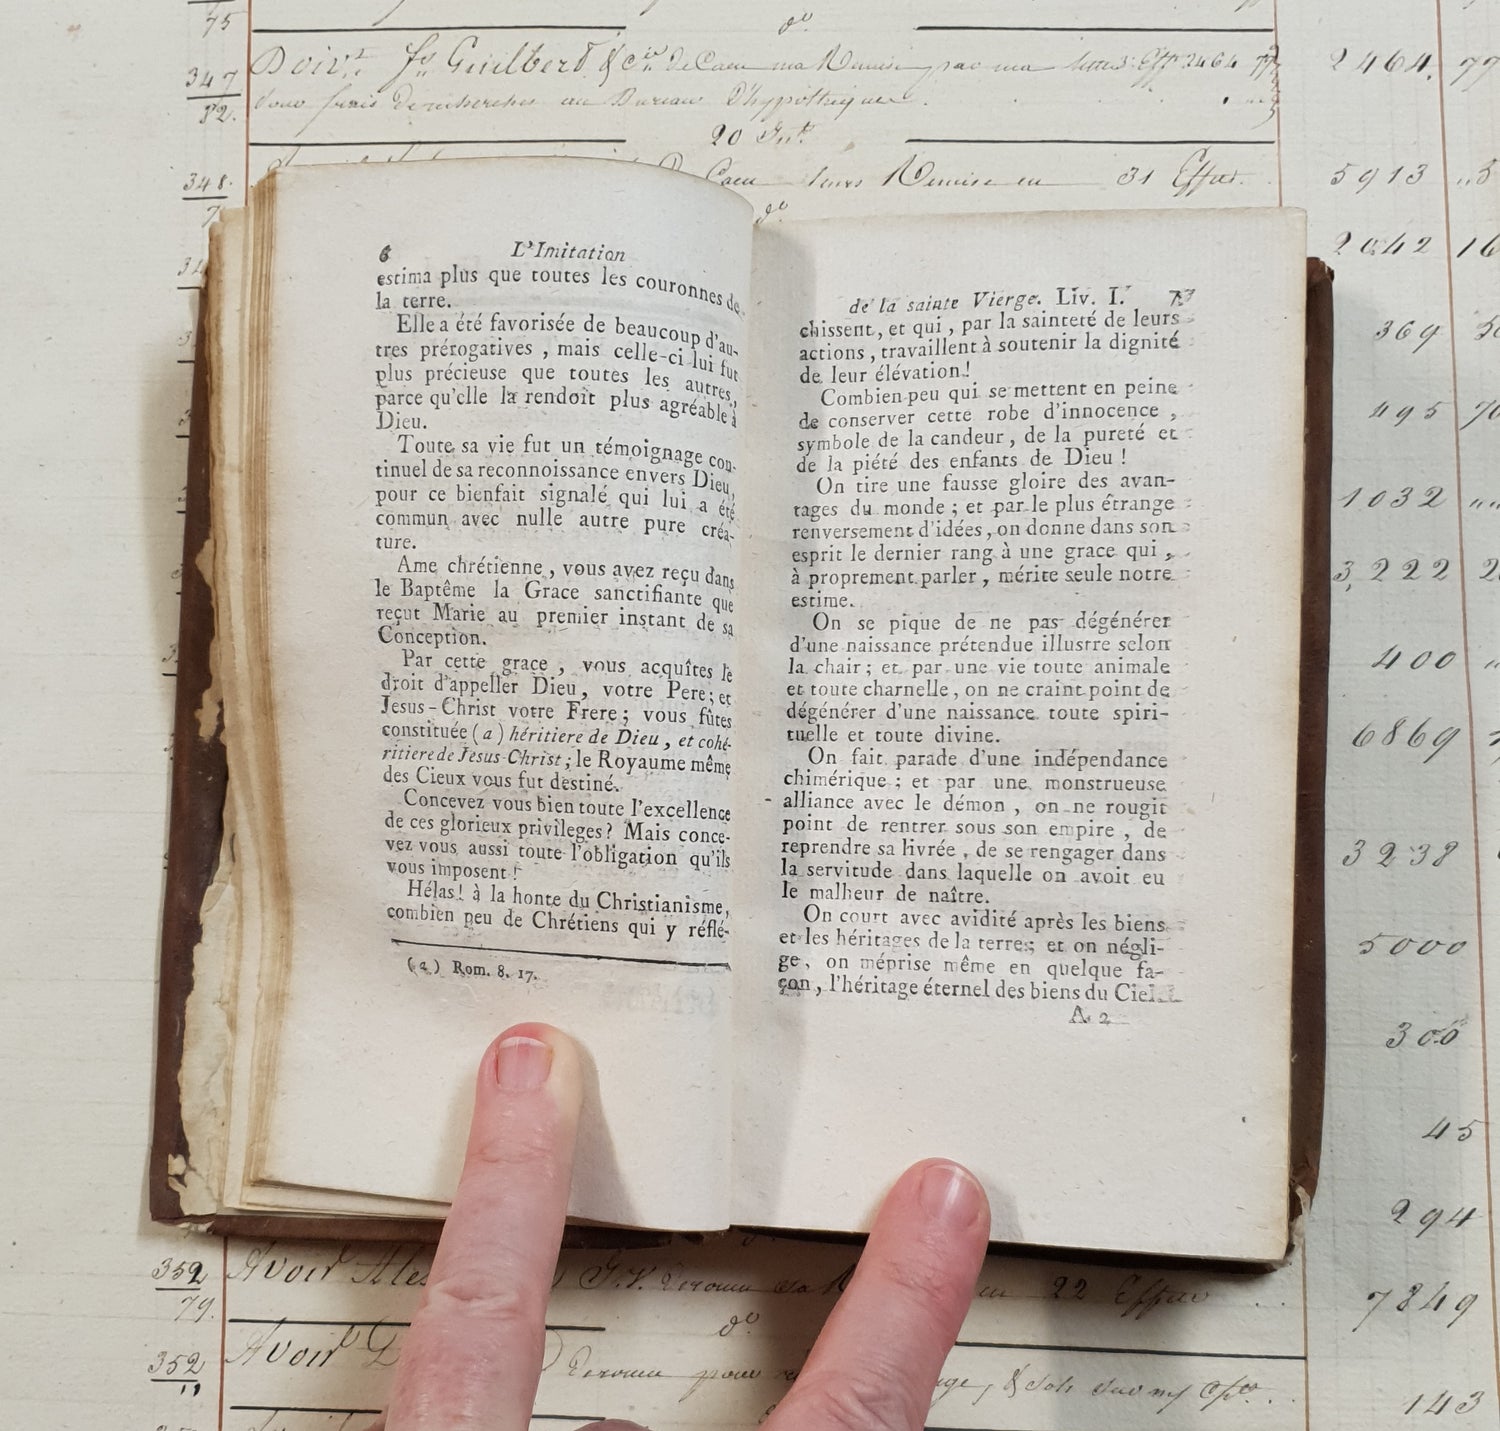 75
dº.
347
Doivt. fs. Guilbert & Cie. de Caen ma Remise par ma lettre Effr. 2464
2464. 77
32.
20
348.
7
Caen leurs Remise en 31 Effets.
5913
dº
2042 16
369
495
1032 „„
3,222
400
6869
3238
5000
300
45
294
7849
143
6 L'Imitation
estima plus que toutes les couronnes de
la terre.
Elle a été favorisée de beaucoup d'au-
tres prérogatives, mais celle-ci lui fut
plus précieuse que toutes les autres,
parce qu'elle la rendoit plus agréable à
Dieu.
Toute sa vie fut un témoignage con-
tinuel de sa reconnoissance envers Dieu,
pour ce bienfait signalé qui lui a été
commun avec nulle autre pure créa-
ture.
Ame chrétienne, vous avez reçu dans
le Baptême la Grace sanctifiante que
reçut Marie au premier instant de sa
Conception.
Par cette grace, vous acquîtes le
droit d'appeller Dieu, votre Pere; et
Jesus-Christ votre Frere; vous fûtes
constituée (a) héritiere de Dieu, et cohé-
ritiere de Jesus-Christ; le Royaume même
des Cieux vous fut destiné.
Concevez vous bien toute l'excellence
de ces glorieux privileges? Mais conce-
vez vous aussi toute l'obligation qu'ils
vous imposent!
Hélas! à la honte du Christianisme,
combien peu de Chrétiens qui y réflé-
(a) Rom. 8. 17.
de la sainte Vierge. Liv. I. 7
chissent, et qui, par la sainteté de leurs
actions, travaillent à soutenir la dignité
de leur élévation!
Combien peu qui se mettent en peine
de conserver cette robe d'innocence,
symbole de la candeur, de la pureté et
de la piété des enfants de Dieu!
On tire une fausse gloire des avan-
tages du monde; et par le plus étrange
renversement d'idées, on donne dans son
esprit le dernier rang à une grace qui,
à proprement parler, mérite seule notre
estime.
On se pique de ne pas dégénérer
d'une naissance prétendue illustre selon
la chair; et par une vie toute animale
et toute charnelle, on ne craint point de
dégénérer d'une naissance toute spiri-
tuelle et toute divine.
On fait parade d'une indépendance
chimérique; et par une monstrueuse
alliance avec le démon, on ne rougit
point de rentrer sous son empire, de
reprendre sa livrée, de se rengager dans
la servitude dans laquelle on avoit eu
le malheur de naître.
On court avec avidité après les biens
et les héritages de la terre; et on négli-
ge, on méprise même en quelque fa-
çon, l'héritage éternel des biens du Ciel.
A 2
352
79.
Avoir
en 22 Effets
dº
352
11
Avoir
pour